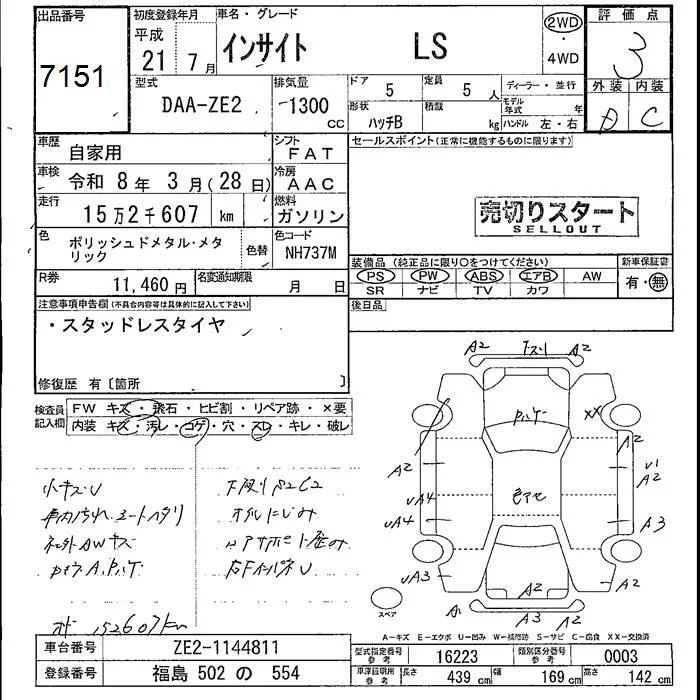 出品番号
7151
初度登録年月
平成
21 年 7 月
車名・グレード
インサイト LS
2WD
・
4WD
評価点
3
外装 内装
C
型式
DAA-ZE2
排気量
1300
CC
ドア
5
定員
5 人
形状
ハッチB
積載
kg
ディーラー・並行
モデル年式 年
ハンドル 左・右
車歴
自家用
シフト
FAT
車検
令和 8 年 3 月(28 日)
冷房
AAC
走行
15万2千607 km
燃料
ガソリン
色
ポリッシュドメタル・メタ
リック
色替
色コード
NH737M
R券
11,460 円
名変通知期限
月 日
セールスポイント(正常に機能するものに限ります)
売切りスタート
SELLOUT
装備品(純正品に限り○をつけてください)
PS PW ABS エアB AW
SR ナビ TV カワ
新車保証書
有・無
後日品
注意事項申告欄(不具合内容等は具体的に記入して下さい)
・スタッドレスタイヤ
修復歴 有〔箇所 〕
検査員
記入欄
FW キズ・飛石・ヒビ割・リペア跡・×要
内装 キズ・汚レ・コゲ・穴・スレ・キレ・破レ
小キズU
社外AWキズ
オイルにじみ
152607km
A2 A2
XX
A2
A2
U1
A2
UA4
UA4
A3
UA3
A2
A2
A1
A3
A2
スペア
A-キズ E-エクボ U-凹み W-補修跡 S-サビ C-腐食 XX-交換済
車台番号
ZE2-1144811
登録番号
福島 502 の 554
型式指定番号
参考
16223
類別区分番号
参考
0003
車庫証明用
参考
長さ
439 cm
幅
169 cm
高さ
142 cm